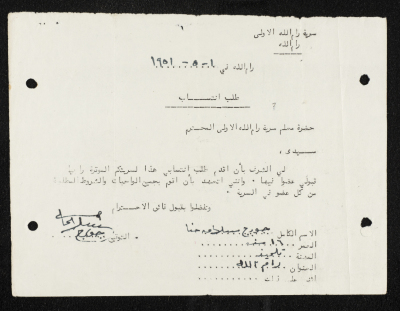 سرية رام الله الاولى
رام الله
رام الله في ١-٥-١٩٥١
طلب انتساب
حضرة معلم سرية رام الله الاولى المحترم
سيدي،
لي الشرف بأن اقدم طلب انتسابي هذا لسريتكم الموقرة راجيا
قبولي عضوا فيها. وانني اتعهد بأن اقوم بجميع الواجبات والشروط المطلوبة
من كل عضو في السرية.
وتفضلوا بقبول فائق الاحترام
الاسم الكامل جورج حنا
التوقيع جورج
العمر ١٦ سنة
المهنة تلميذ
العنوان رام الله